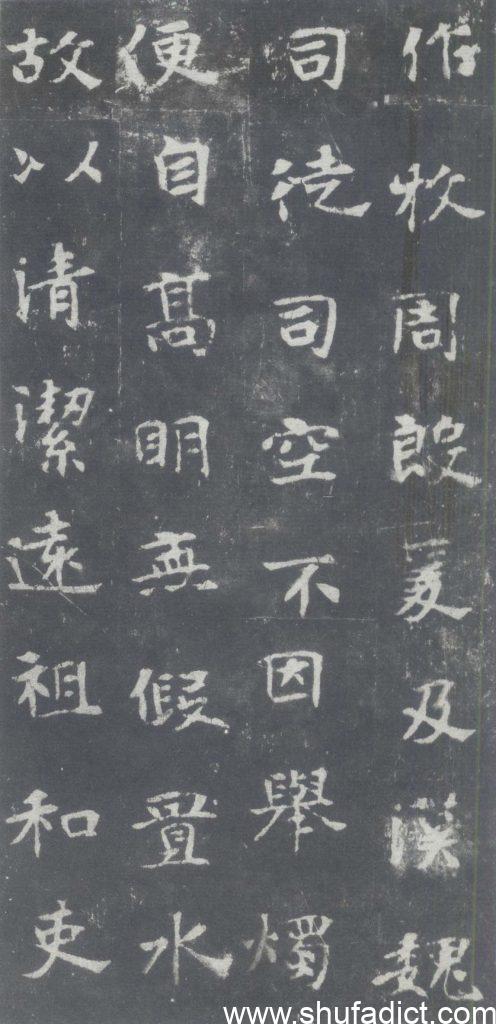 作牧周殷夏及漢魏
司徒司空不因舉燭
便自高明無假置水
故以清潔遠祖和吏
www.shufadict.com